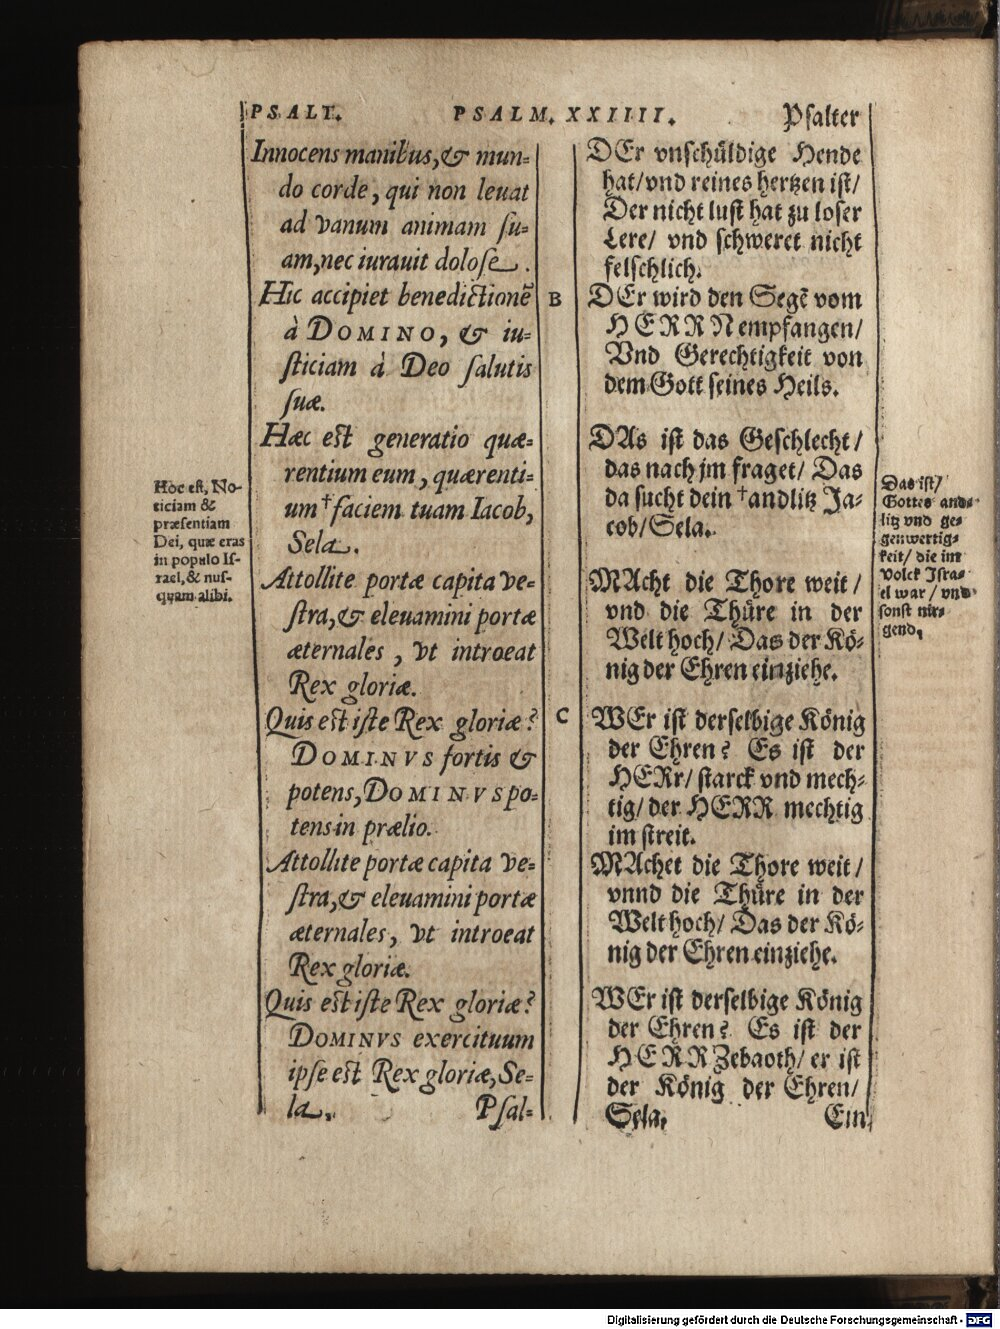 PSALT. PSALM. XXIIII. Psalter
Innocens manibus, & mun-
do corde, qui non leuat
ad vanum animam su-
am, nec iurauit dolose.
Hic accipiet benedictionē
à DOMINO, & iu-
sticiam à Deo salutis
suæ.
Hæc est generatio quæ-
rentium eum, quærenti-
um † faciem tuam Iacob,
Sela.
Attollite portæ capita ve-
stra, & eleuamini portæ
æternales, vt introeat
Rex gloriæ.
Quis est iste Rex gloriæ?
DOMINVS fortis &
potens, DOMINVS po-
tens in prælio.
Attollite portæ capita ve-
stra, & eleuamini portæ
æternales, vt introeat
Rex gloriæ.
Quis est iste Rex gloriæ?
DOMINVS exercituum
ipse est Rex gloriæ, Se-
la.
Psal-
Hoc est, No-
ticiam &
præsentiam
Dei, quæ eras
in populo Is-
rael, & nus-
quam alibi.
B
C
DEr vnschüldige Hende
hat/ vnd reines hertzen ist/
Der nicht lust hat zu loser
Lere/ vnd schweret nicht
felschlich.
DEr wird den Segē vom
HERRN empfangen/
Vnd Gerechtigkeit von
dem Gott seines Heils.
DAs ist das Geschlecht/
das nach jm fraget/ Das
da sucht dein † andlitz Ja-
cob/ Sela.
MAcht die Thore weit/
vnd die Thüre in der
Welt hoch/ Das der Kö-
nig der Ehren einziehe.
WEr ist derselbige König
der Ehren? Es ist der
HERr/ starck vnd mech-
tig/ der HERR mechtig
im streit.
MAchet die Thore weit/
vnnd die Thüre in der
Welt hoch/ Das der Kö-
nig der Ehren einziehe.
WEr ist derselbige König
der Ehren? Es ist der
HERR Zebaoth/ er ist
der König der Ehren/
Sela.
Ein
Das ist/
Gottes and-
litz vnd ge-
genwertig-
keit/ die im
volck Isra-
el war/ vnd
sonst nir-
gend.
Digitalisierung gefördert durch die Deutsche Forschungsgemeinschaft - DFG